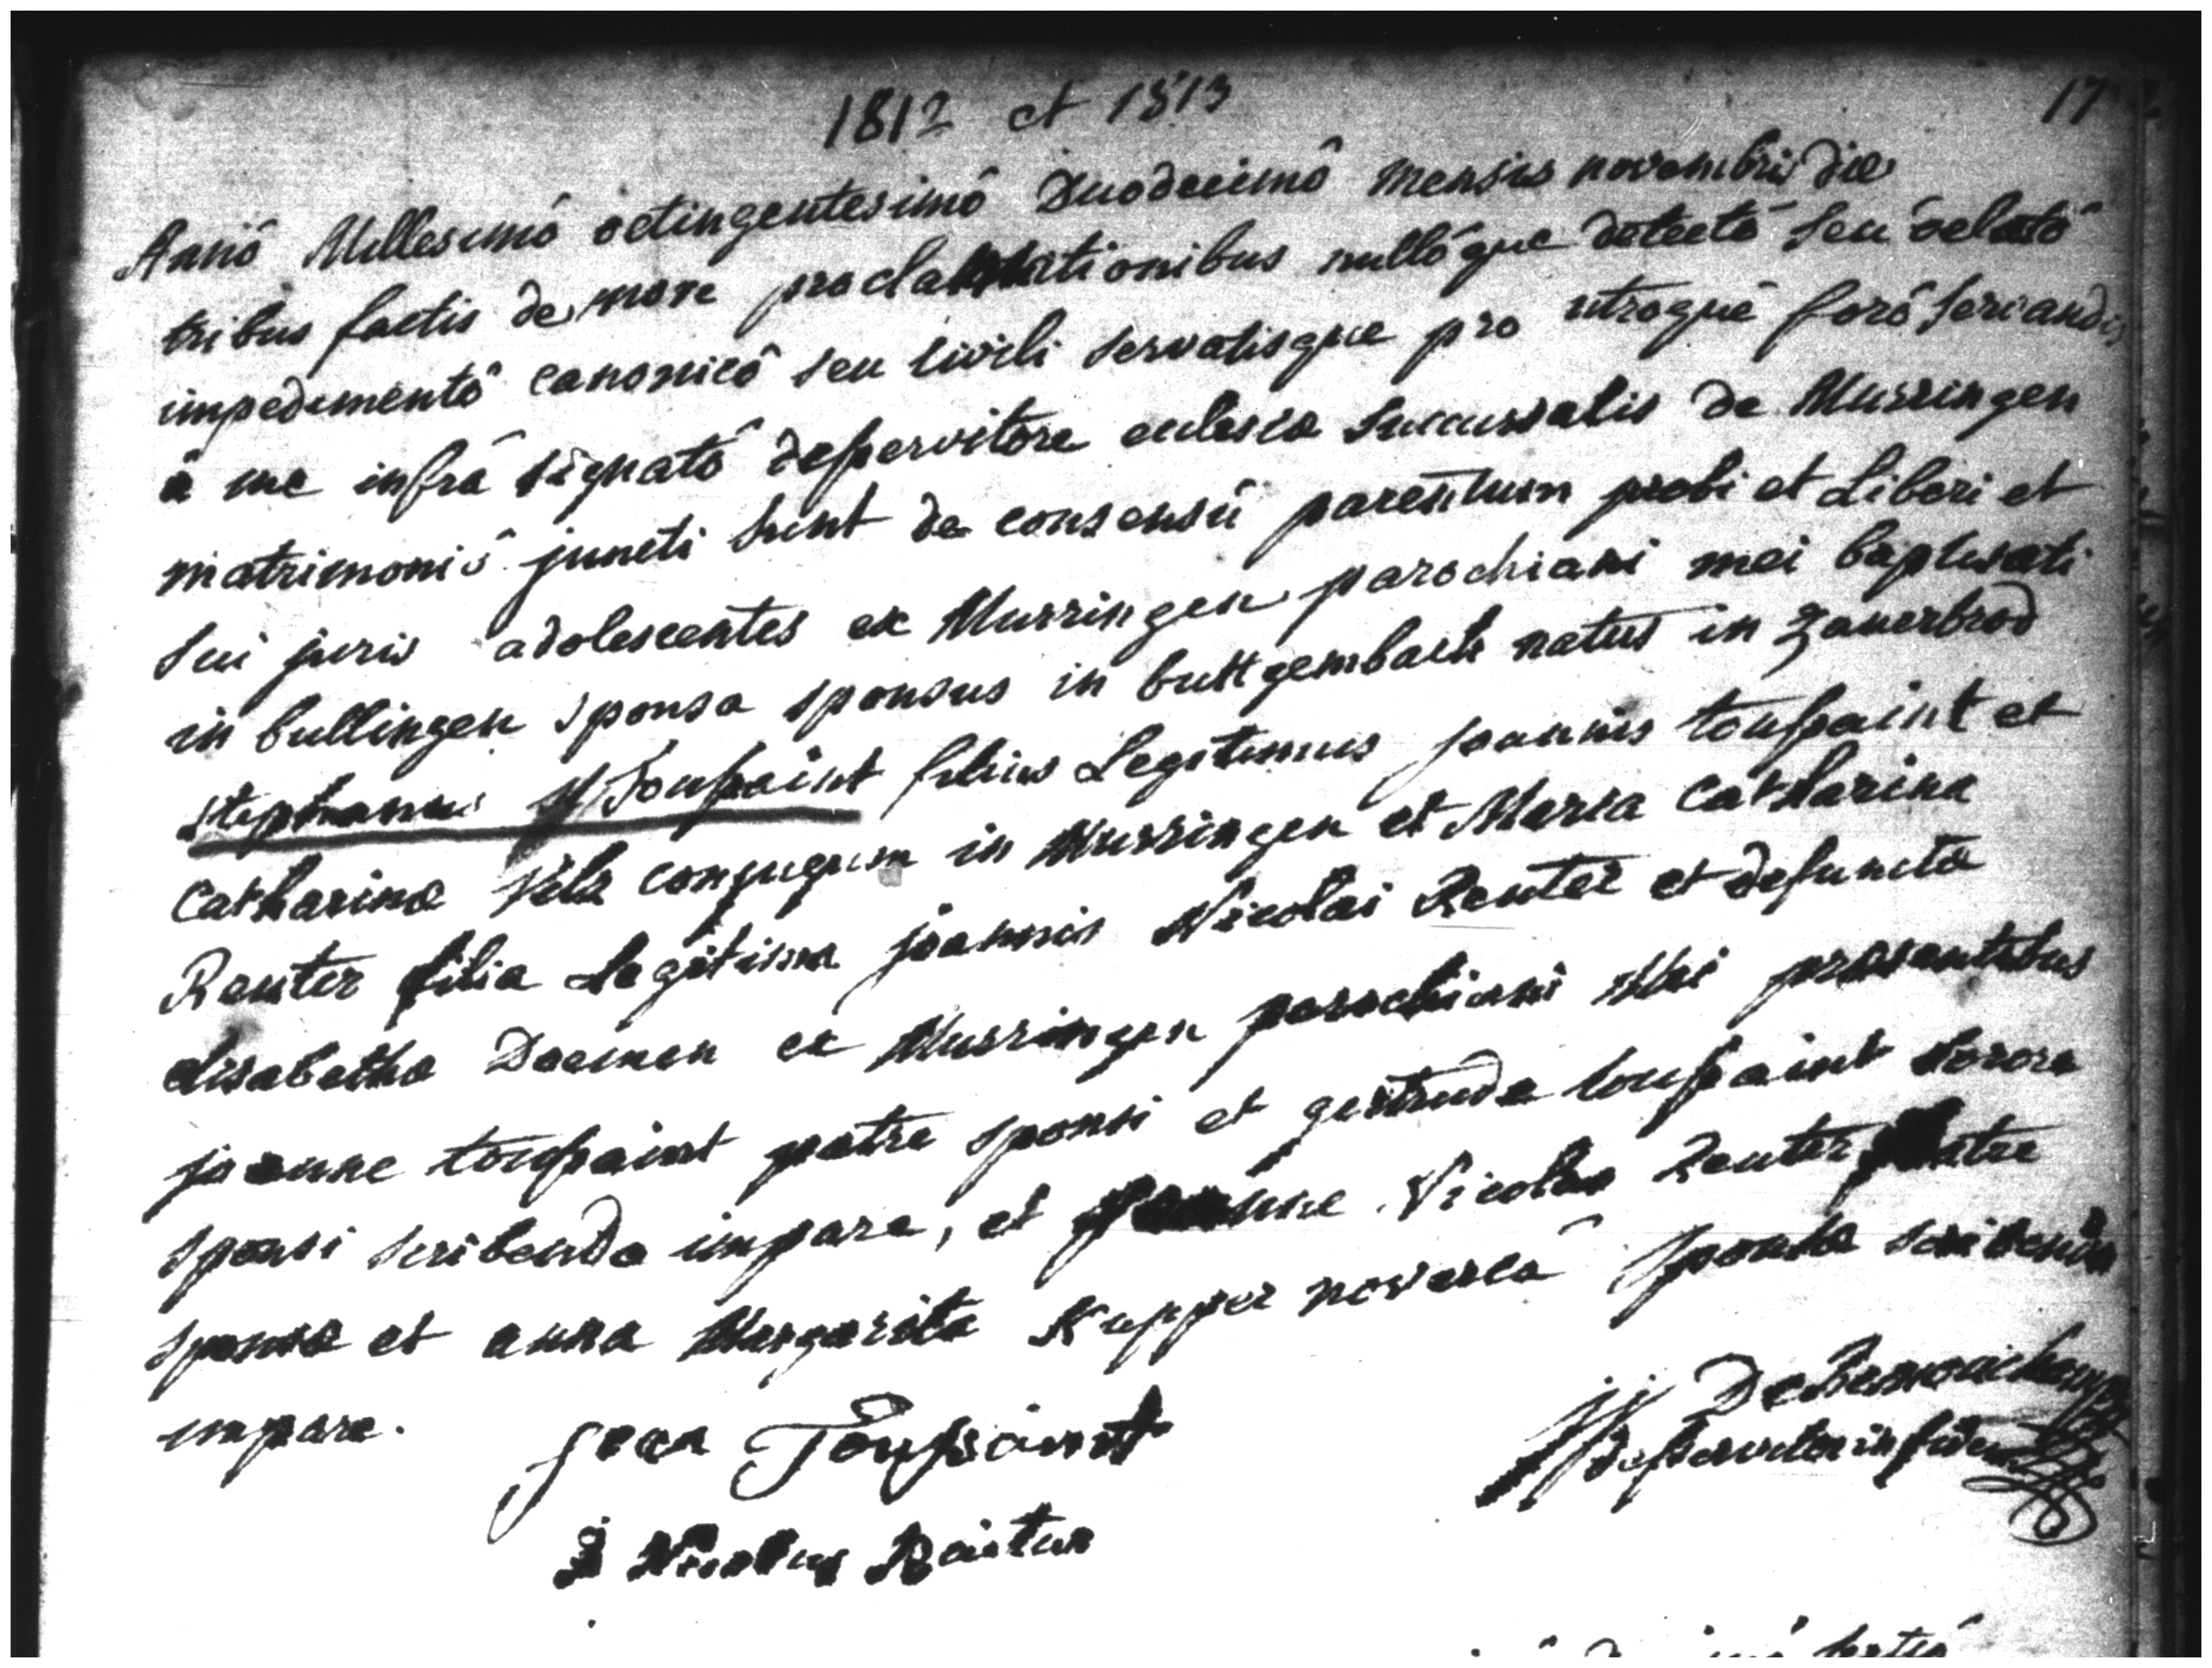 1812 et 1813
17
Annô Millesimô octingentesimô Duodecimô mensis novembris die
tribus factis de more proclamationibus nullôque detectô seu velatô
impedimentô canonicô seu civili servatisque pro utroque forô servandis
à me infrâ signatô deservitore eclesia succursalis de Murringen
matrimoniô juncti sunt de consensû parentum probi et Liberi et
sui juris adolescentes ex Murringen parochiani mei baptisati
in bullingen sponsa sponsus in buttgembach natus in
Stephanus Toussaint filius Legitimus joannis toussaint et
Catharina conjugum in Murringen et Maria Catharina
Reuter filia Legitima joannis Nicolai Reuter et defuncta
elisabetha ex Murringen parochiani Mei præsentibus
joanne toussaint patre sponsi et gertrude toussaint sorore
sponsi scribenda impara, et joanne Nicolao Reuter patre
sponsa et anna Margarita Kupper novercâ sponsa scribenda
impara.
Jean Toussaint
jj DeRemouchamps
desservitor in fidem
J Nicolaus